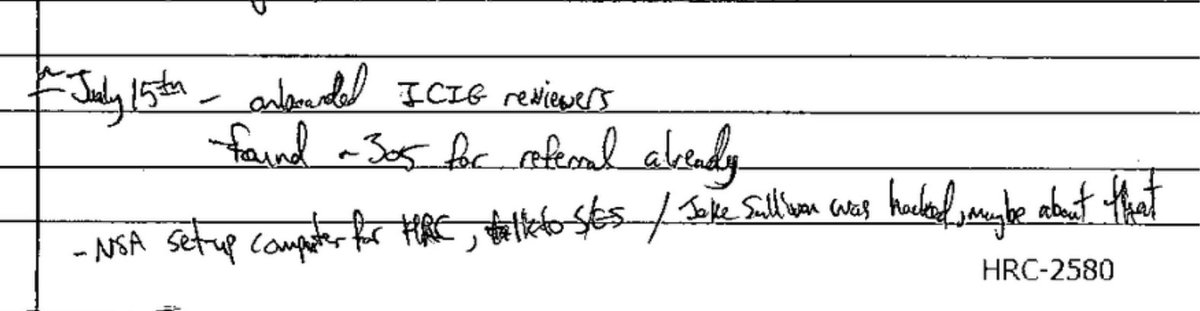 ~ July 15th - onboarded ICIG reviewers
- found ~305 for referral already
- NSA setup computer for HRC, talk to S/ES / Jake Sullivan was hacked, maybe about that
HRC-2580